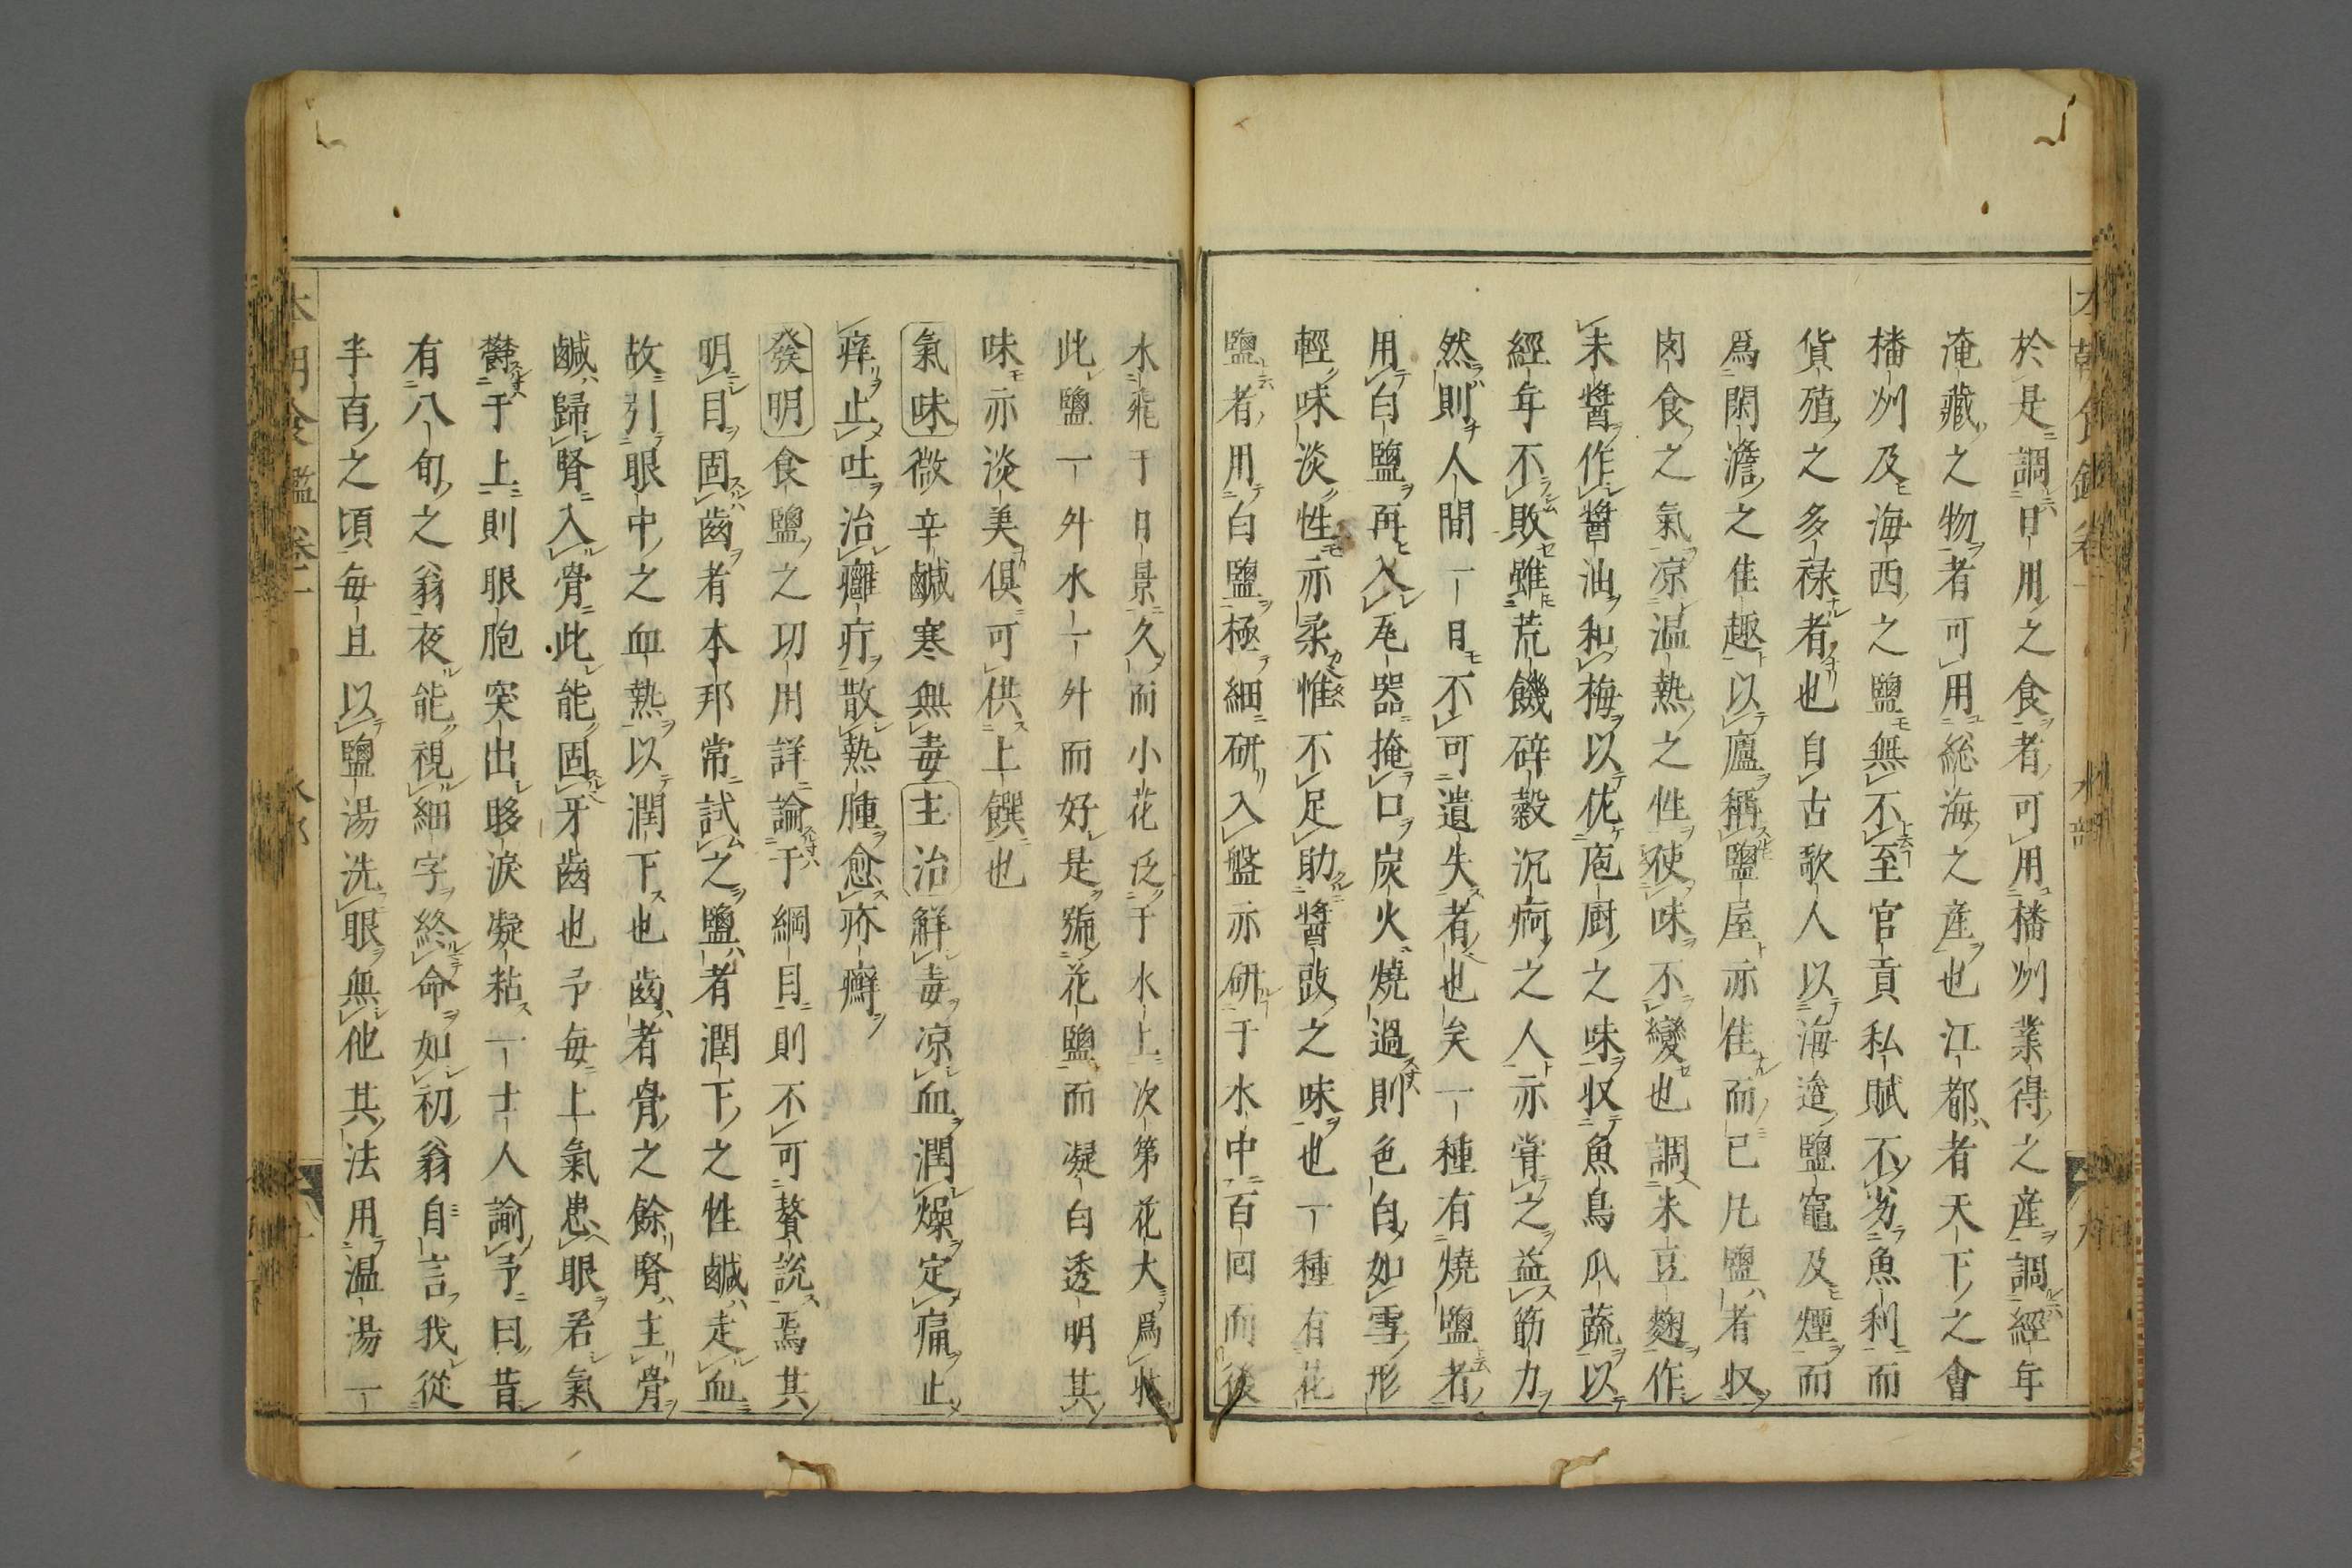 於是調日用之食者可用播州業得之産調經年
淹藏之物者可用総海之産也江都者天下之會
播州及海西之鹽無不至官貢私賦不劣魚利而
貨殖之多禄者也自古歌人以海邉鹽竈及煙而
為閑澹之佳趣以廬稱鹽屋亦佳而已凡鹽者収
肉食之氣凉温熱之性使味不變也調米豆麹作
未醬作醬油和梅以佐庖厨之味収魚鳥瓜蔬以
經年不敗雖荒饑碎穀沉痾之人亦甞之益筋力
然則人間一日不可遺失者也矣一種有燒鹽者
用白鹽再入瓦器掩口炭火燒過則色白如雪形
輕味淡性亦柔惟不足助醬豉之味也一種有花
鹽者用白鹽極細研入盤亦研于水中百回而後
水飛干日景久而小花泛于水上次第花大為
此鹽一外水一外而好是號花鹽而凝白透明其
味亦淡美倶可供上饌也
氣味微辛鹹寒無毒主治解毒凉血潤燥定痛止
痒止吐治癰疔散熱腫愈疥癬
發明食鹽之功用詳論于綱目則不可贅説焉其
明目固齒者本邦常試之鹽者潤下之性鹹走血
故引眼中之血熱以潤下也齒者骨之餘腎主骨
鹹歸腎入骨此能固牙齒也予毎上氣患眼若氣
欝于上則眼胞突出眵淚凝粘一士人諭予曰昔
有八旬之翁夜能視細字終命如初翁自言我從
半百之頃毎旦以鹽湯洗眼無他其法用温湯一
本朝食鑑卷一
水部